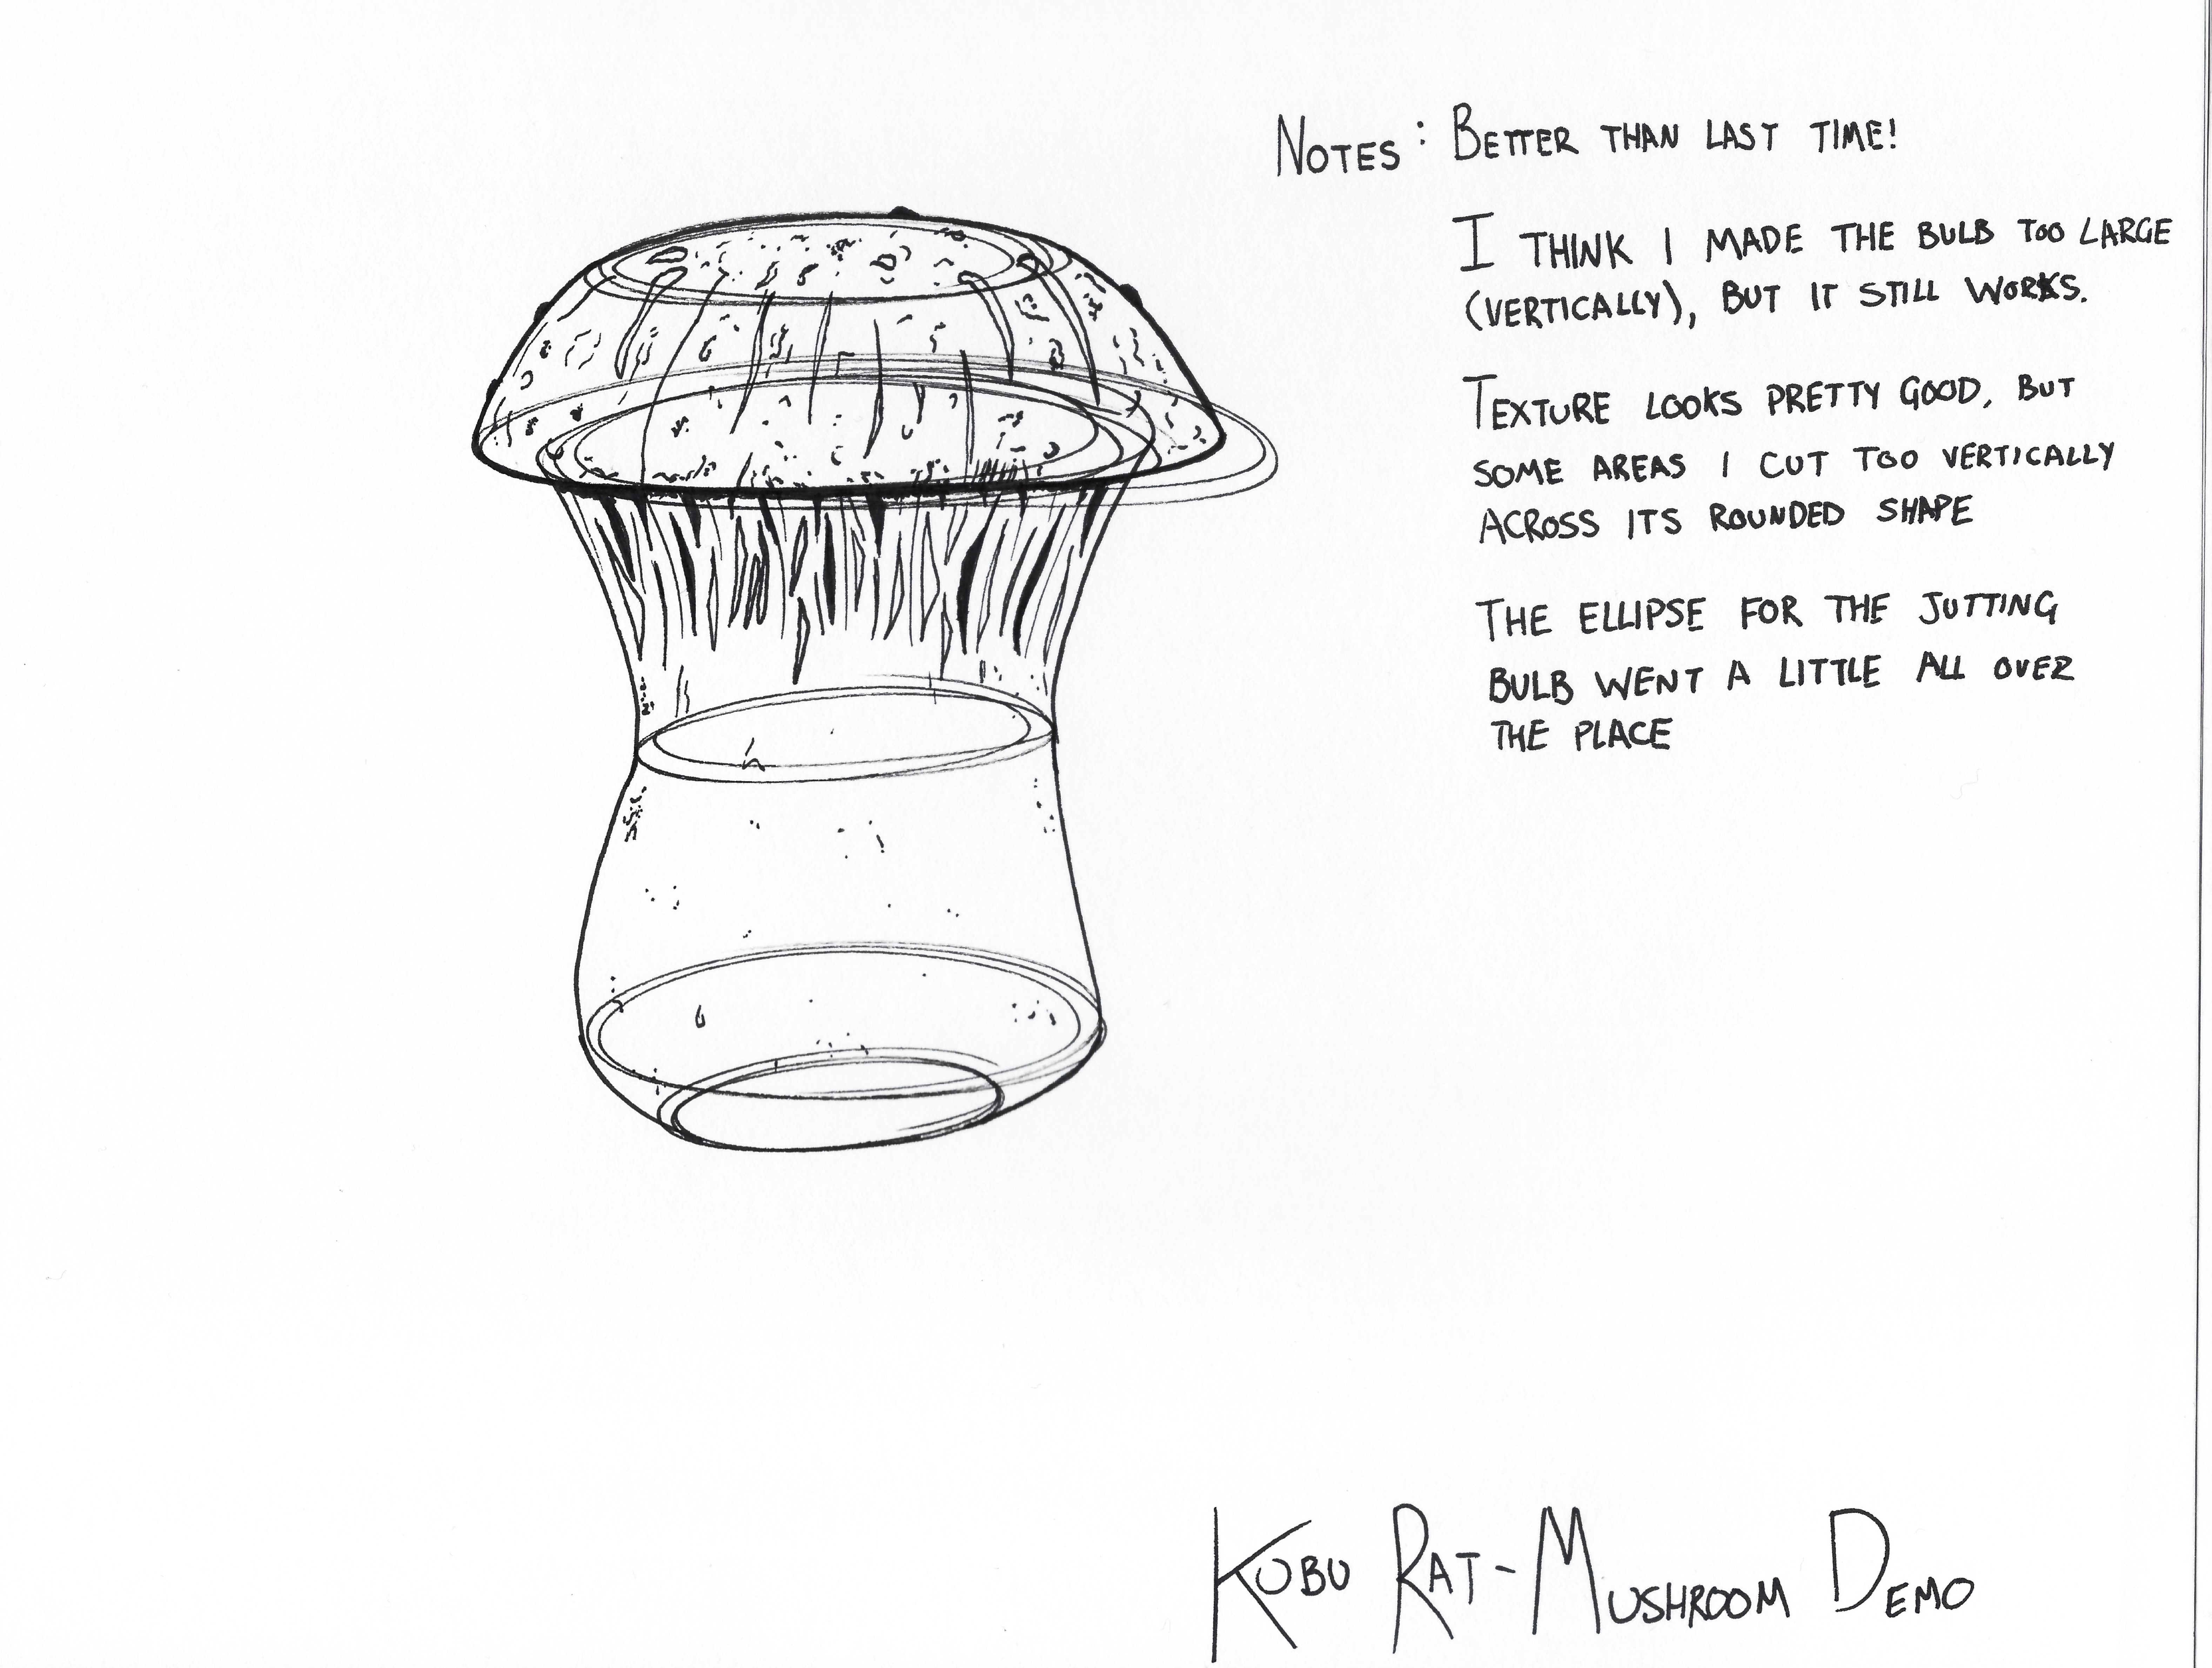 NOTES: BETTER THAN LAST TIME!
I THINK I MADE THE BULB TOO LARGE
(VERTICALLY), BUT IT STILL WORKS.
TEXTURE LOOKS PRETTY GOOD, BUT
SOME AREAS I CUT TOO VERTICALLY
ACROSS ITS ROUNDED SHAPE
THE ELLIPSE FOR THE JUTTING
BULB WENT A LITTLE ALL OVER
THE PLACE
KUBU RAT-MUSHROOM DEMO